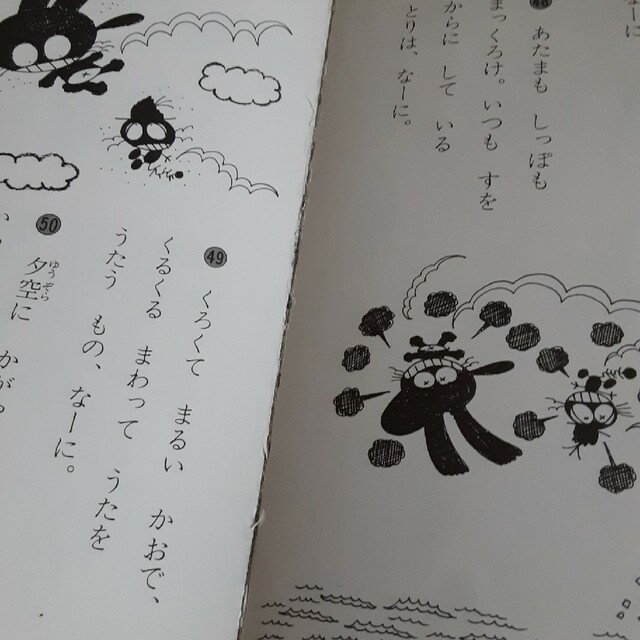 なーに
48
あたまも しっぽも
まっくろけ。いつも すを
からに して いる
とりは、なーに。
49
くろくて まるい かおで、
くるくる まわって うたを
うたう もの、なーに。
50
夕空に かがっ
ゆうぞら